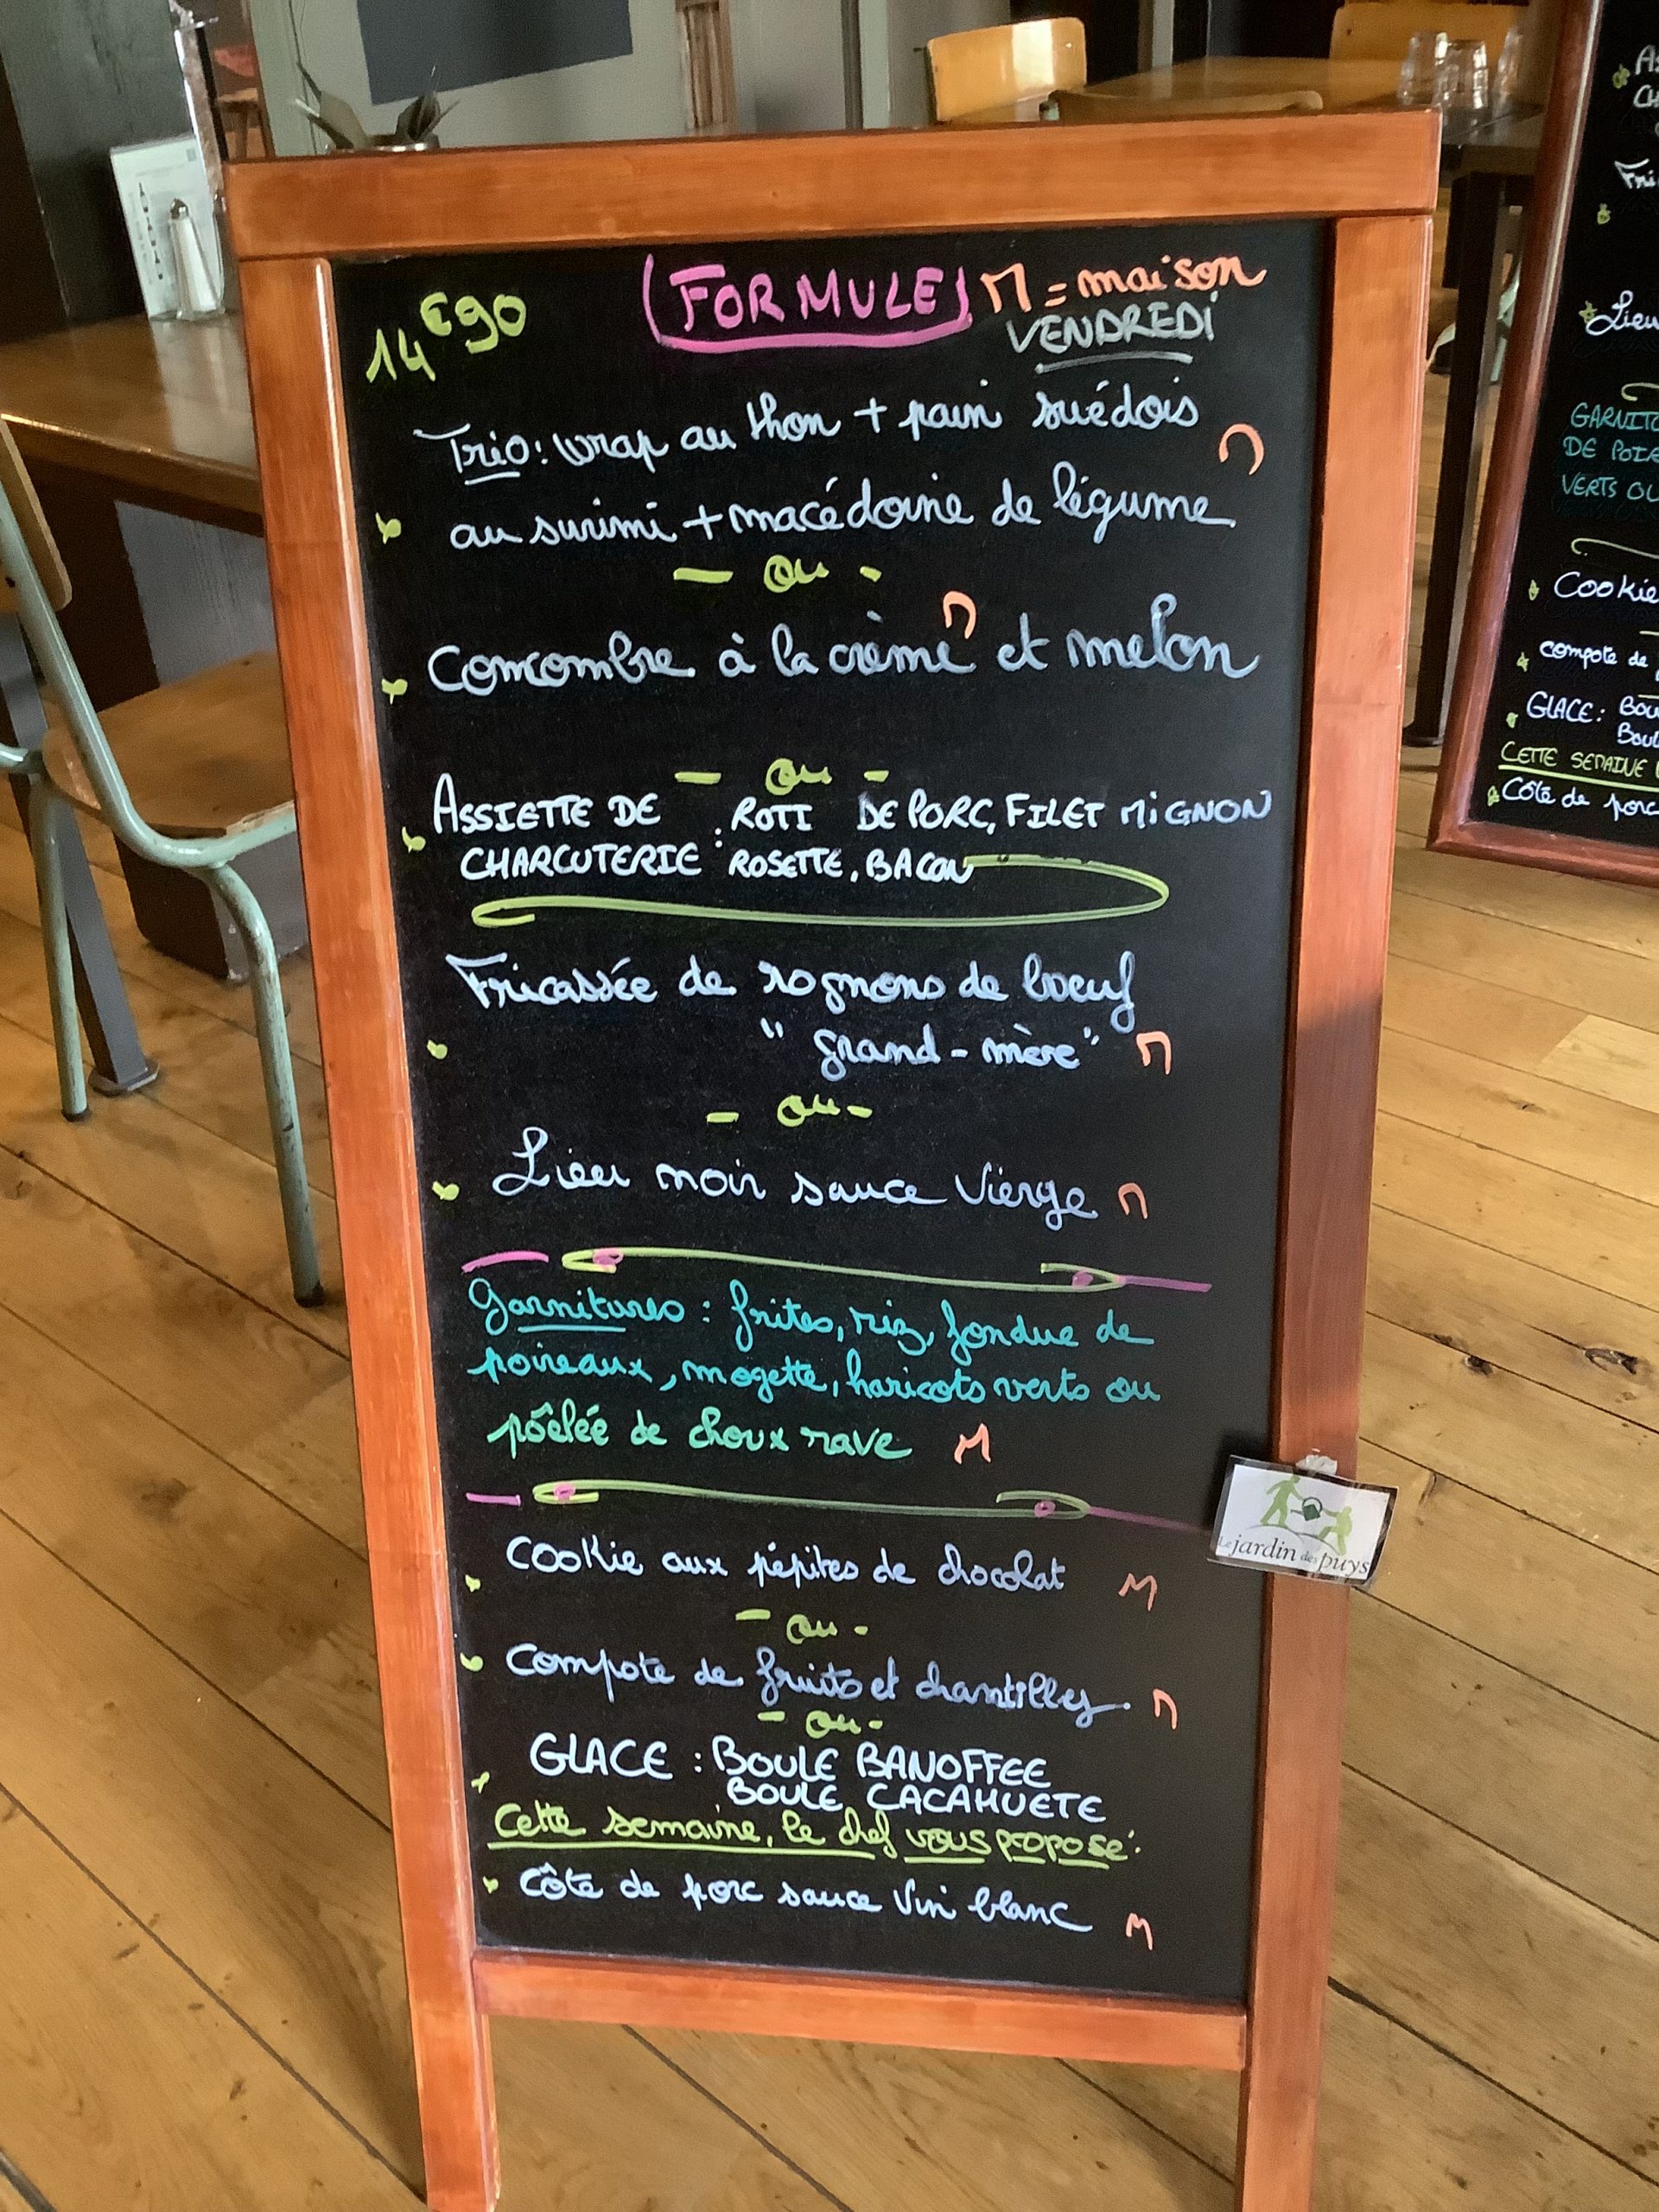 14€90
FORMULE M = maison
VENDREDI
Trio : wrap au thon + pain suédois M
au surimi + macédoine de légume
- ou -
Concombre à la crème M et melon
- ou -
ASSIETTE DE : ROTI DE PORC, FILET MIGNON
CHARCUTERIE ROSETTE, BACON
Fricassée de rognons de boeuf
"grand-mère" M
- ou -
Lieu noir sauce Vierge M
Garnitures : frites, riz, fondue de
poireaux, mogette, haricots verts ou
pôêlée de choux rave M
Cookie aux pépites de chocolat M
- ou -
Compote de fruits et chantilly. M
- ou -
GLACE : BOULE BANOFFEE
BOULE CACAHUETE
Cette semaine, le chef vous propose :
Côte de porc sauce Vin blanc M
Le jardin des puys
Lieu
DE
VERTS OU
Cookie
compote de
GLACE :
CETTE SEMAINE
Côte de porc